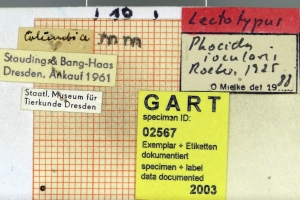 Columbia
mm
Lectotypus
Phocides
Roeber, 1925
O Mielke det 19
Staudinger & Bang-Haas
Dresden, Ankauf 1961
Staatl. Museum für
Tierkunde Dresden
GART
specimen ID:
02567
Exemplar + Etiketten
dokumentiert
specimen + label
data documented
2003